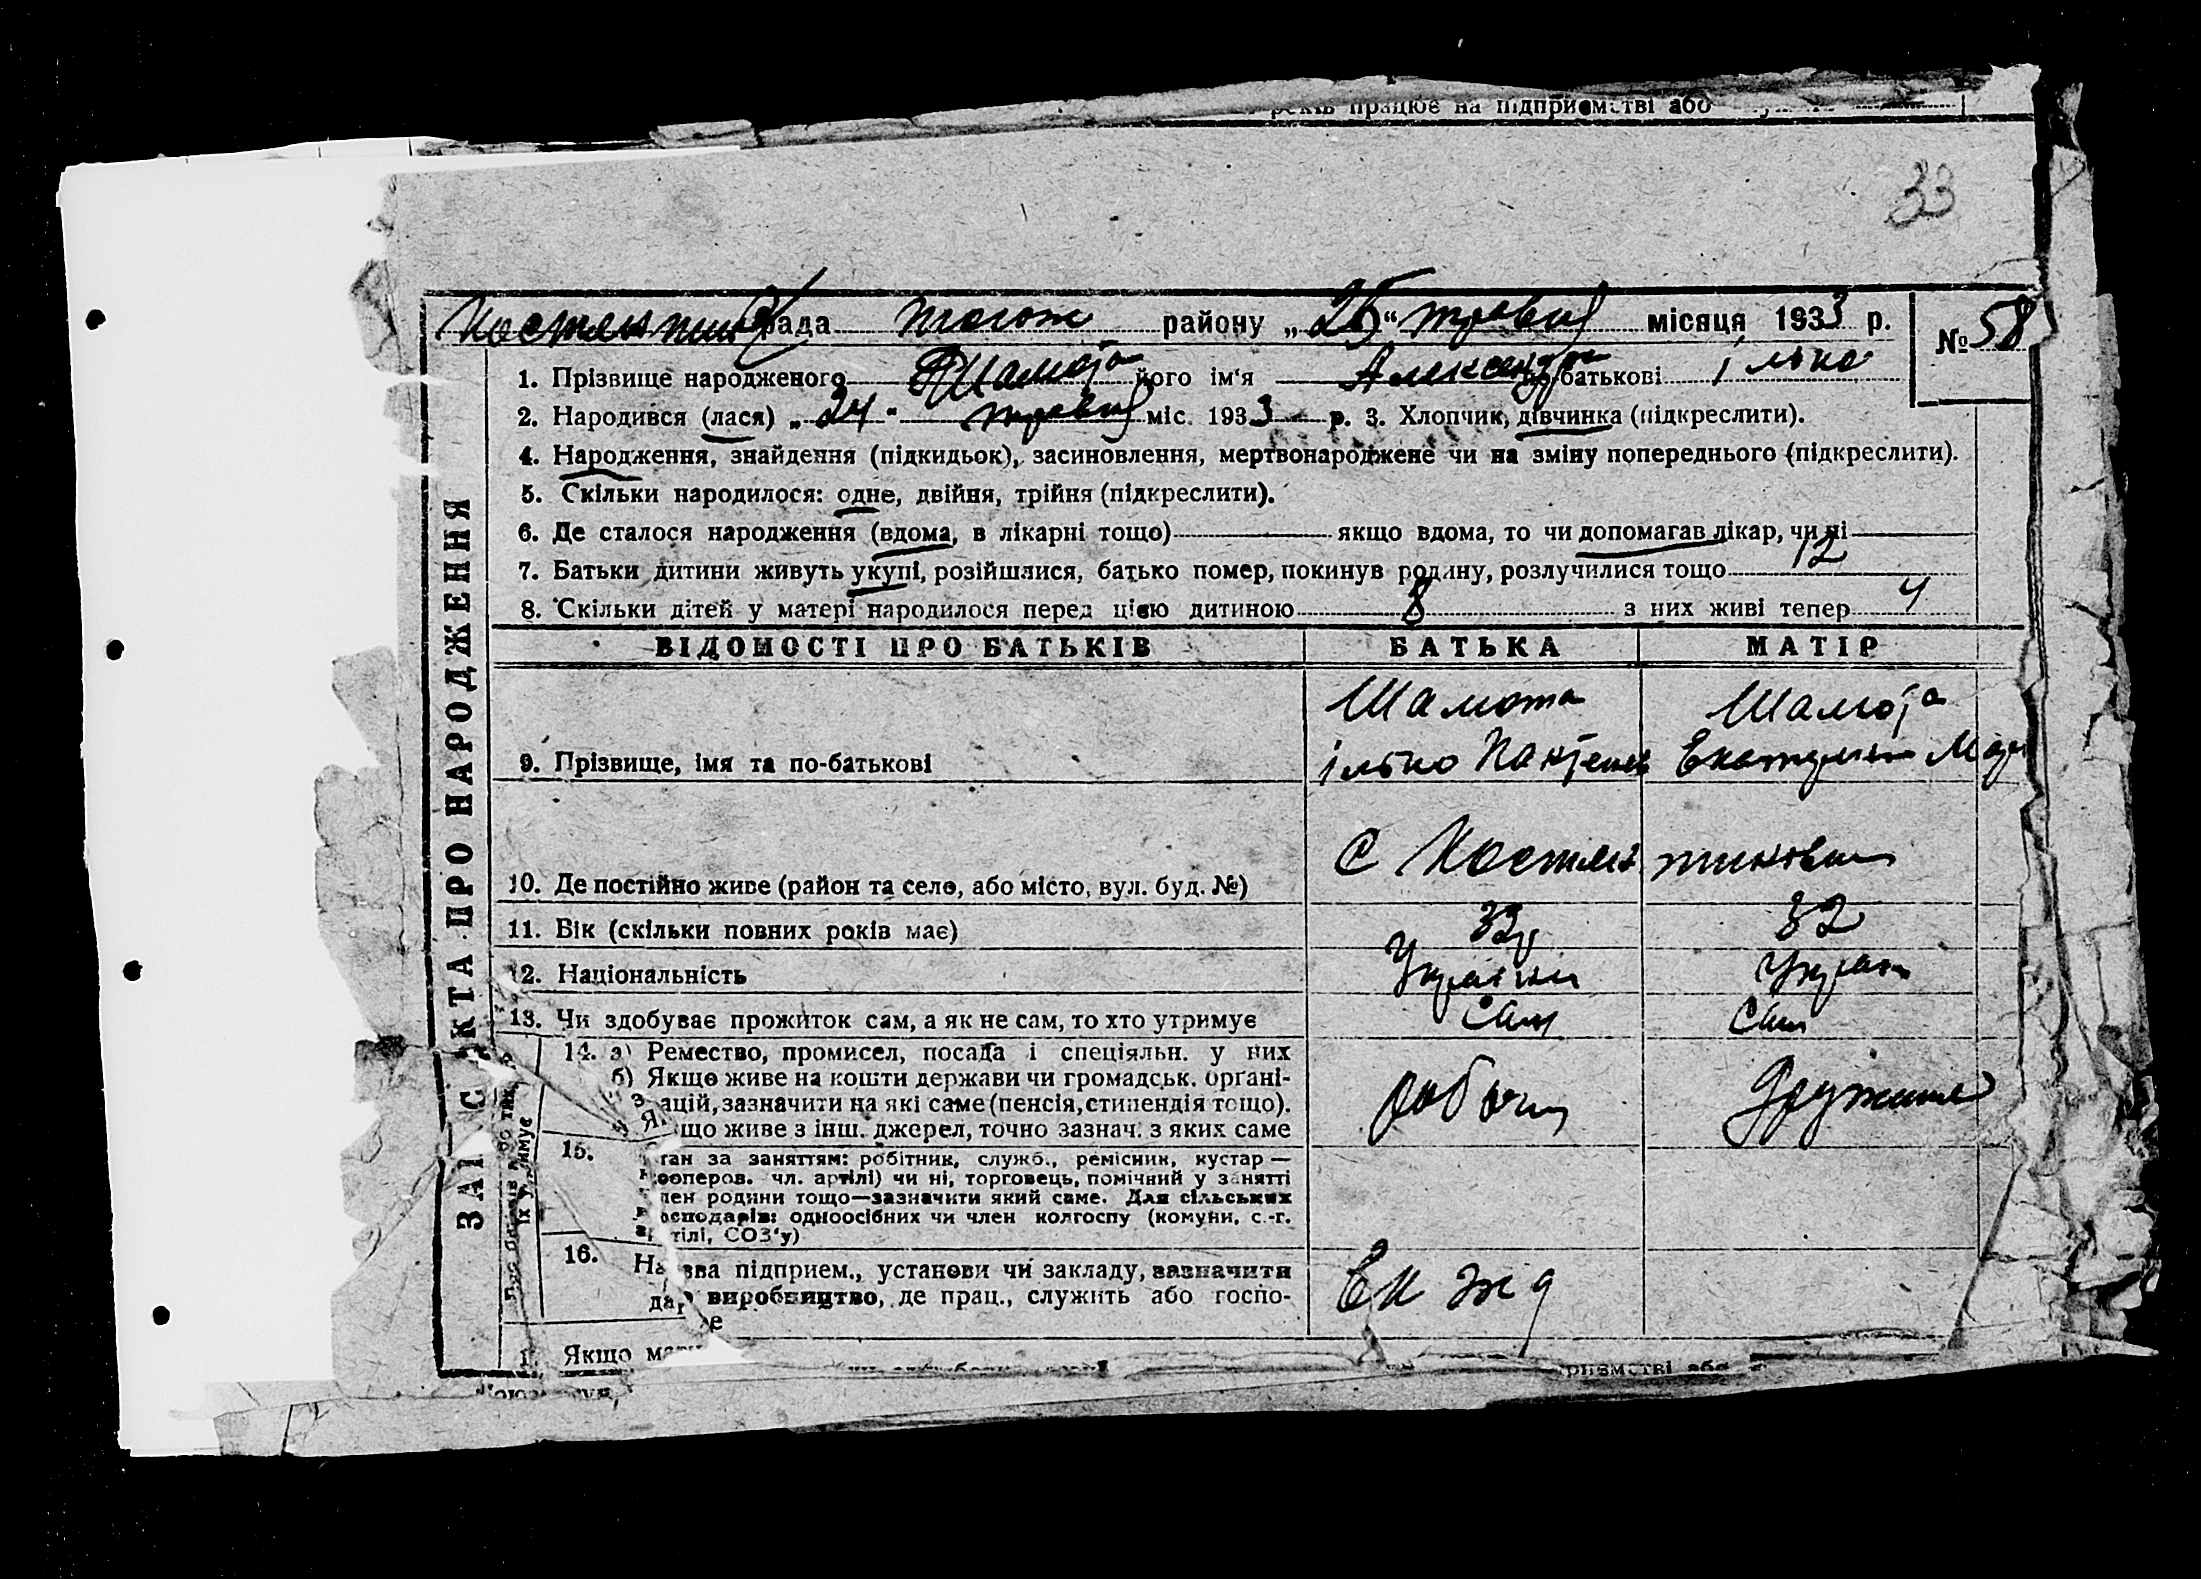 років працює на підприємстві або
33
рада район у „25“ травня місяця 1933 р. №58
1. Прізвище народженого Шамота його ім'я Александра по батькові Ілько
2. Народився (лася) „24“ травня міс. 1933 р. 3. Хлопчик, дівчинка (підкреслити).
4. Народження, знайдення (підкидьок), засиновлення, мертвонароджене чи на зміну попереднього (підкреслити).
5. Скільки народилося: одне, двійня, трійня (підкреслити).
6. Де сталося народження (вдома, в лікарні тощо) якщо вдома, то чи допомагав лікар, чи ні
7. Батьки дитини живуть укупі, розійшлися, батько помер, покинув родину, розлучилися тощо 12
8. Скільки дітей у матері народилося перед цією дитиною 8 з них живі тепер 4
ВІДОМОСТІ ПРО БАТЬКІВ БАТЬКА МАТІР
Шамота Шамота
9. Прізвище, імя та по-батькові Ілько
10. Де постійно живе (район та село, або місто, вул. буд. №) С
11. Вік (скільки повних років має) 32 32
12. Національність Україн Україн
13. Чи здобуває прожиток сам, а як не сам, то хто утримує Сам Сам
14. а) Ремество, промисел, посада і спеціяльн. у них
б) Якщо живе на кошти держави чи громадськ. органі-
зацій, зазначити на які саме (пенсія, стипендія тощо).
Якщо живе з інш. джерел, точно зазнач. з яких саме
робочий Дружина
15. Стан за заняттям: робітник, служб., ремісник, кустар —
(кооперов. чл. артілі) чи ні, торговець, помічний у занятті
член родини тощо—зазначити який саме. Для сільських
господарів: одноосібних чи член колгоспу (комуни, с.-г.
артілі, СОЗ'у)
16. Назва підприєм., установи чи закладу, зазначити
виробництво, де прац., служить або госпо-
дарює
Ек жд
Якщо
ЗАГС АКТА ПРО НАРОДЖЕННЯ